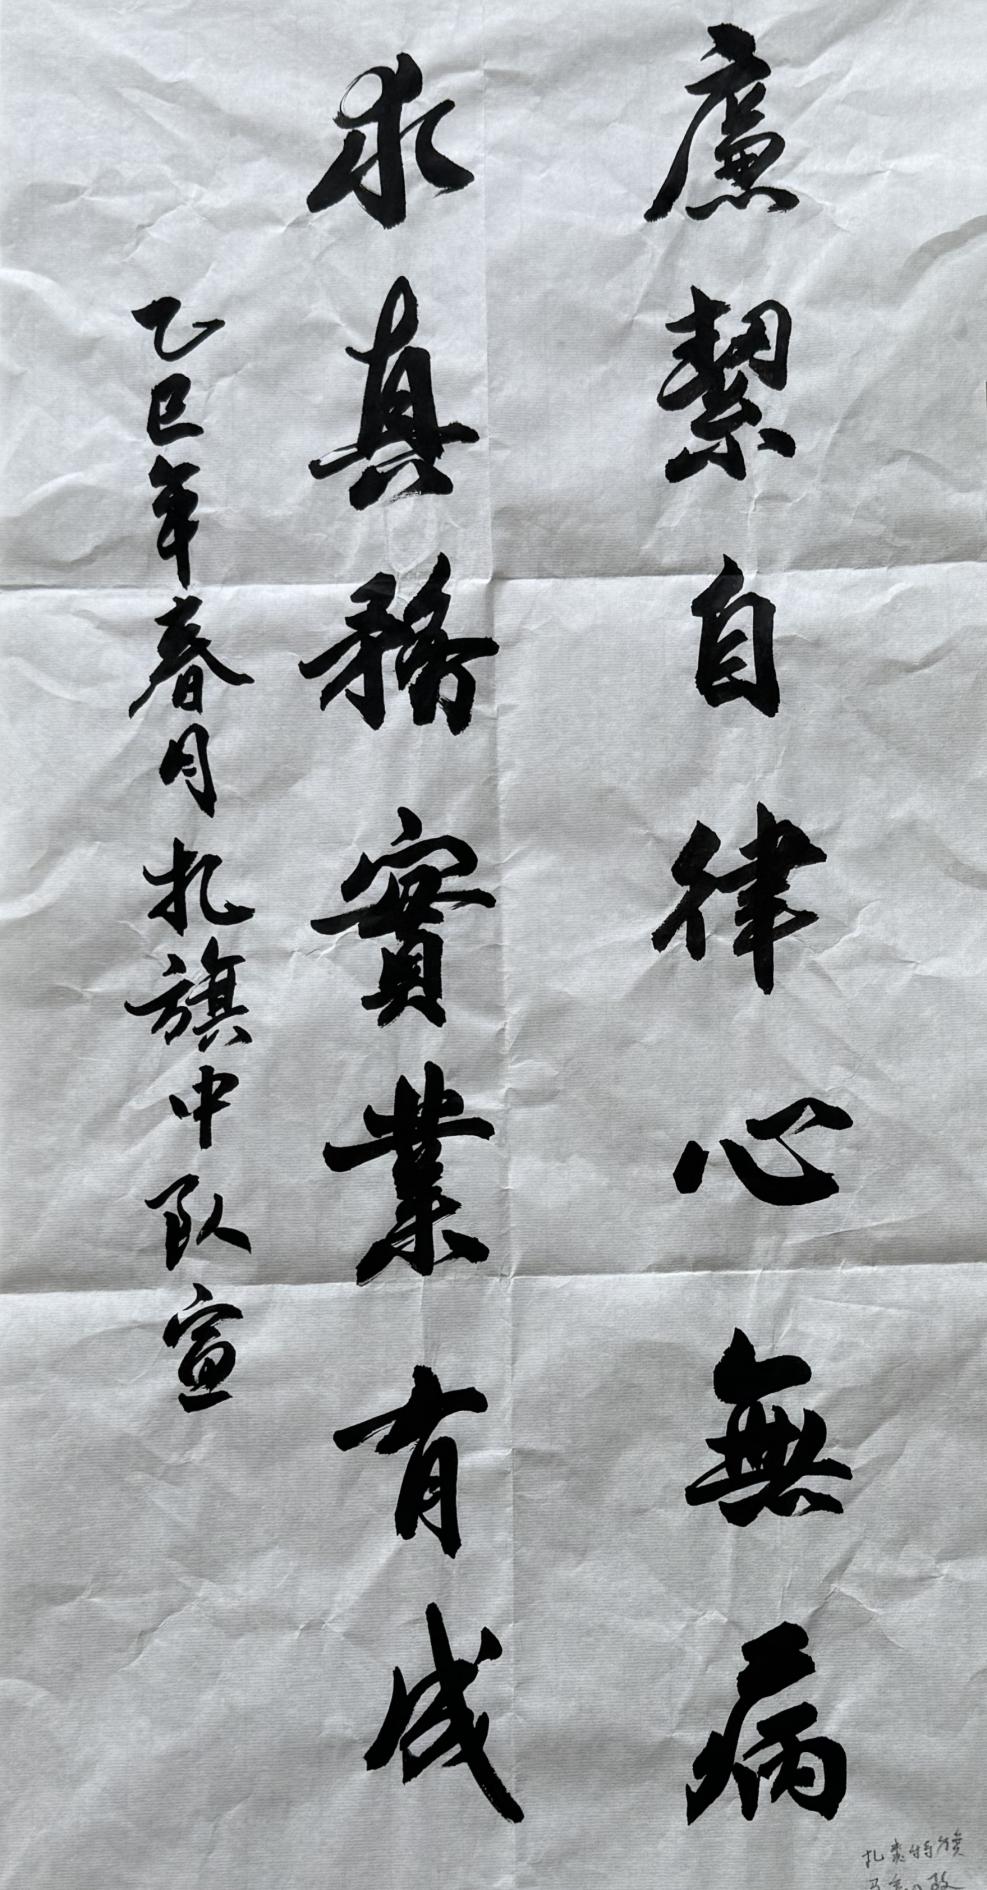 廉絜自律心無病
求真務實業有成
乙巳年春月扎旗中队宣